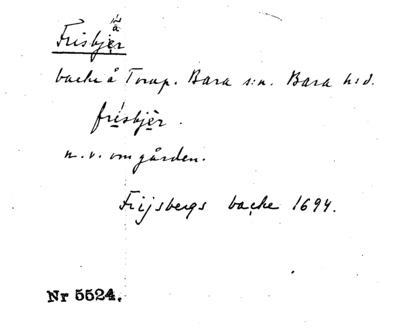 Frisbjär
backe å Torup. Bara s:n. Bara h:d.
frisbjèr.
n. v. om gården.
Frijsbergs backe 1694.
Nr 5524.